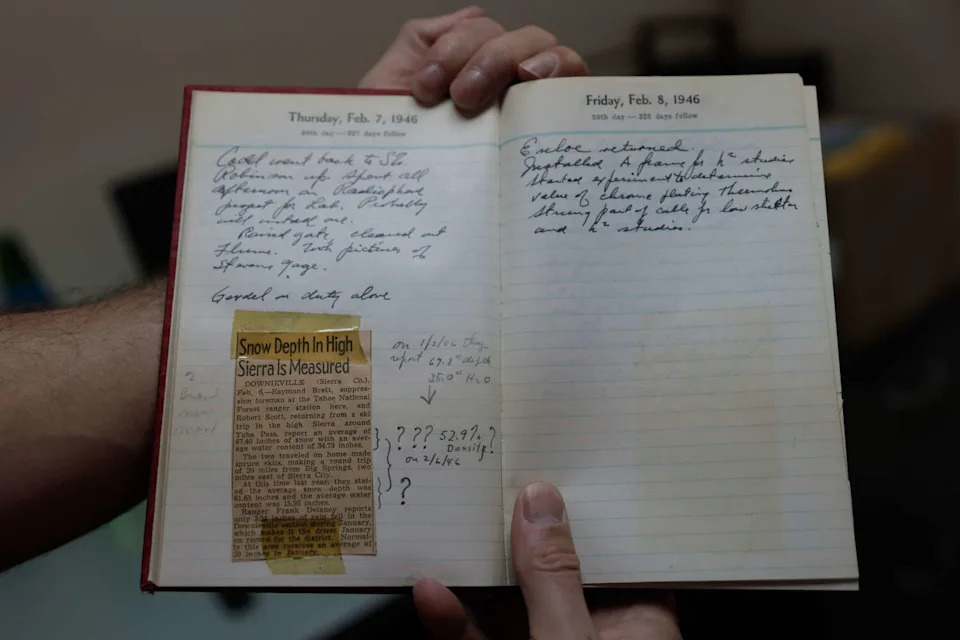 Thursday, Feb. 7, 1946
38th day — 327 days follow
went back to
Robinson up. Spent all
afternoon on Radiophone
project for Lab. Probably
will
Raised gate, cleaned out
Flume. Took pictures of
Stevens gage.
Gerdel on duty alone
Snow Depth In High
Sierra Is Measured
DOWNIEVILLE (Sierra Co.),
Feb. 6.—Raymond Brett, suppres-
sion foreman at the Tahoe National
Forest ranger station here, and
Robert Scott, returning from a ski
trip in the high Sierra around
Yuba Pass, report an average of
67.40 inches of snow with an aver-
age water content of 34.79 inches.
The two traveled on home made
spruce skis, making a round trip
of 20 miles from Big Springs, two
miles east of Sierra City.
At this time last year, they stat-
ed the average snow depth was
61.63 inches and the average water
content was 15.93 inches.
Ranger Frank Delaney reports
only inches of rain fell in the
Downieville section during January,
which makes it the driest January
on record for the district. Normal-
ly this area receives an average of
20 inches in January.
on they
report 69.8" depth
35.0" H2O
??? 52.9% ?
Density
on 2/6/46
?
Friday, Feb. 8, 1946
39th day — 326 days follow
returned.
Installed A frame for h² studies
started experiment to determine
value of chrome plating thermohm
strung part of cable for low shelter
and h² studies.